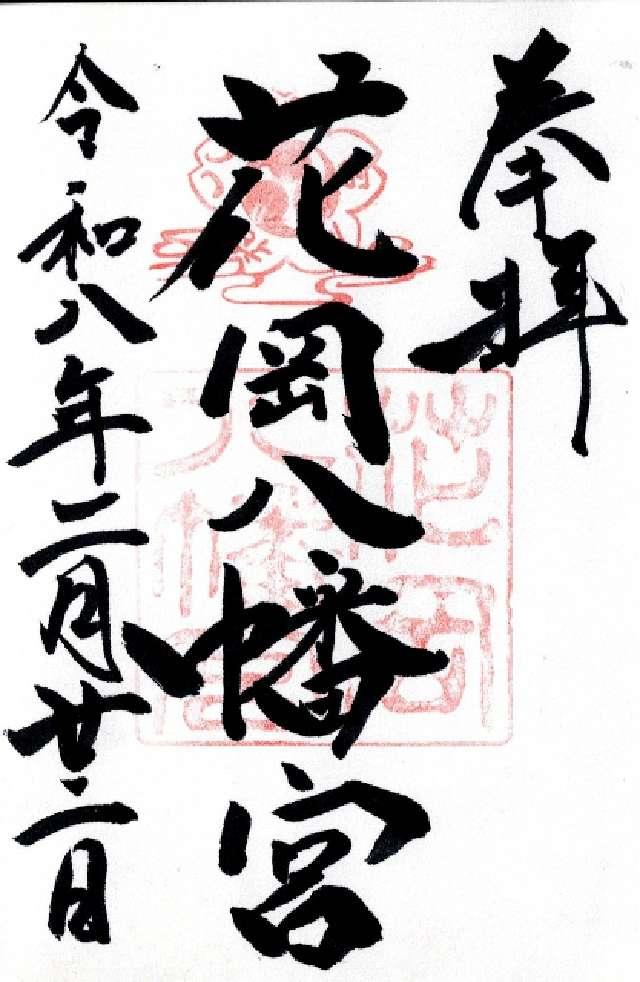 奉拝
花岡八幡宮
令和八年二月廿二日
花岡八幡宮